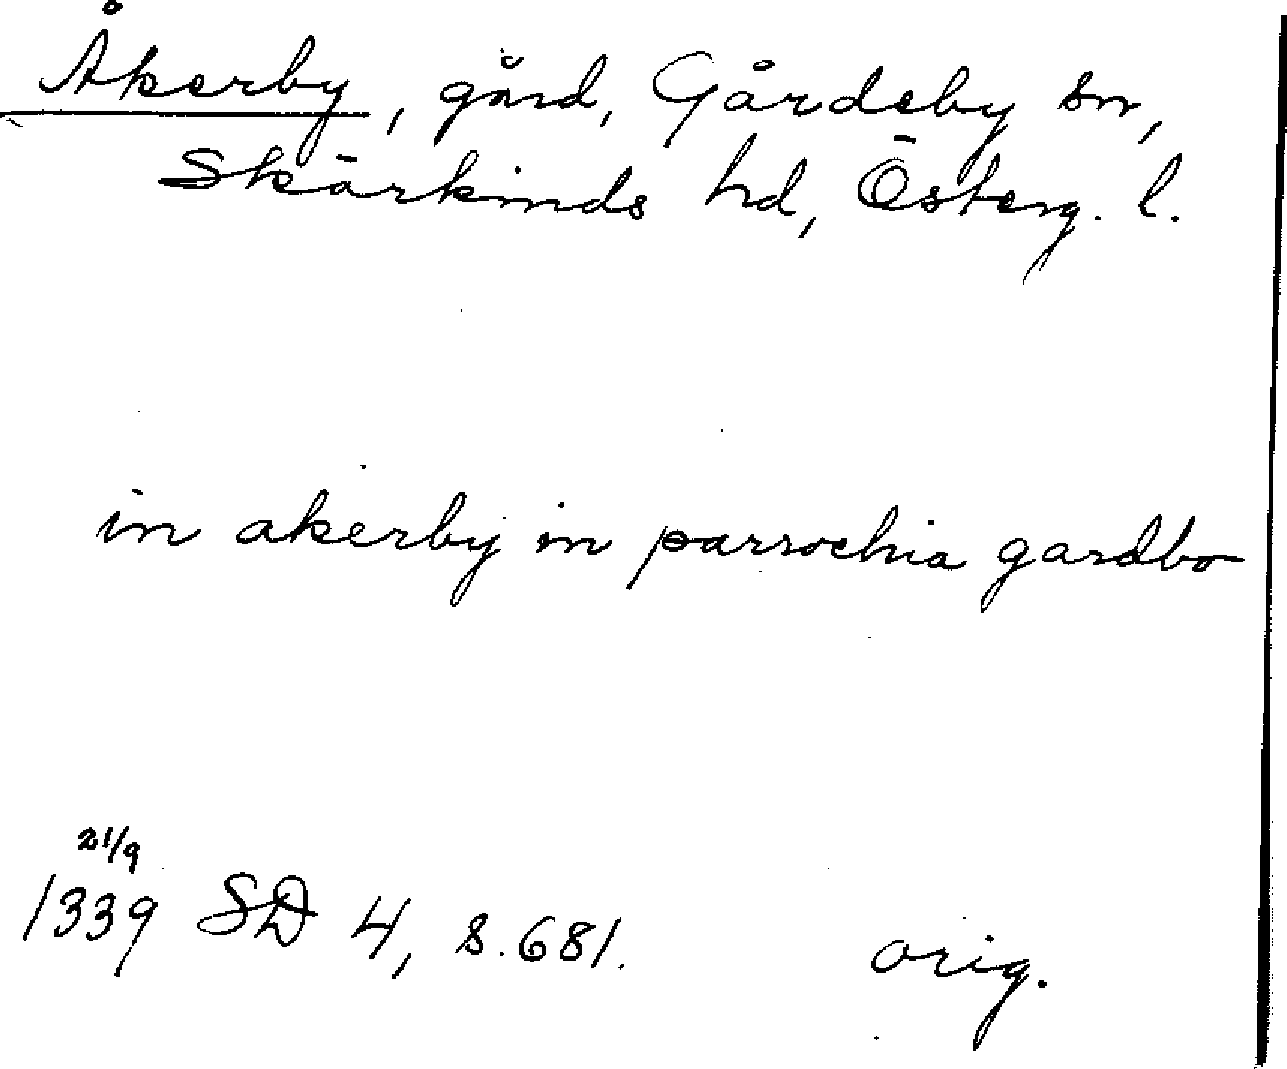 Åkerby, gård, Gårdeby sn,
Skärkinds hd, Österg. l.
in akerby in parrochia gardbo
21/9
1339 SD 4, s. 681. orig.